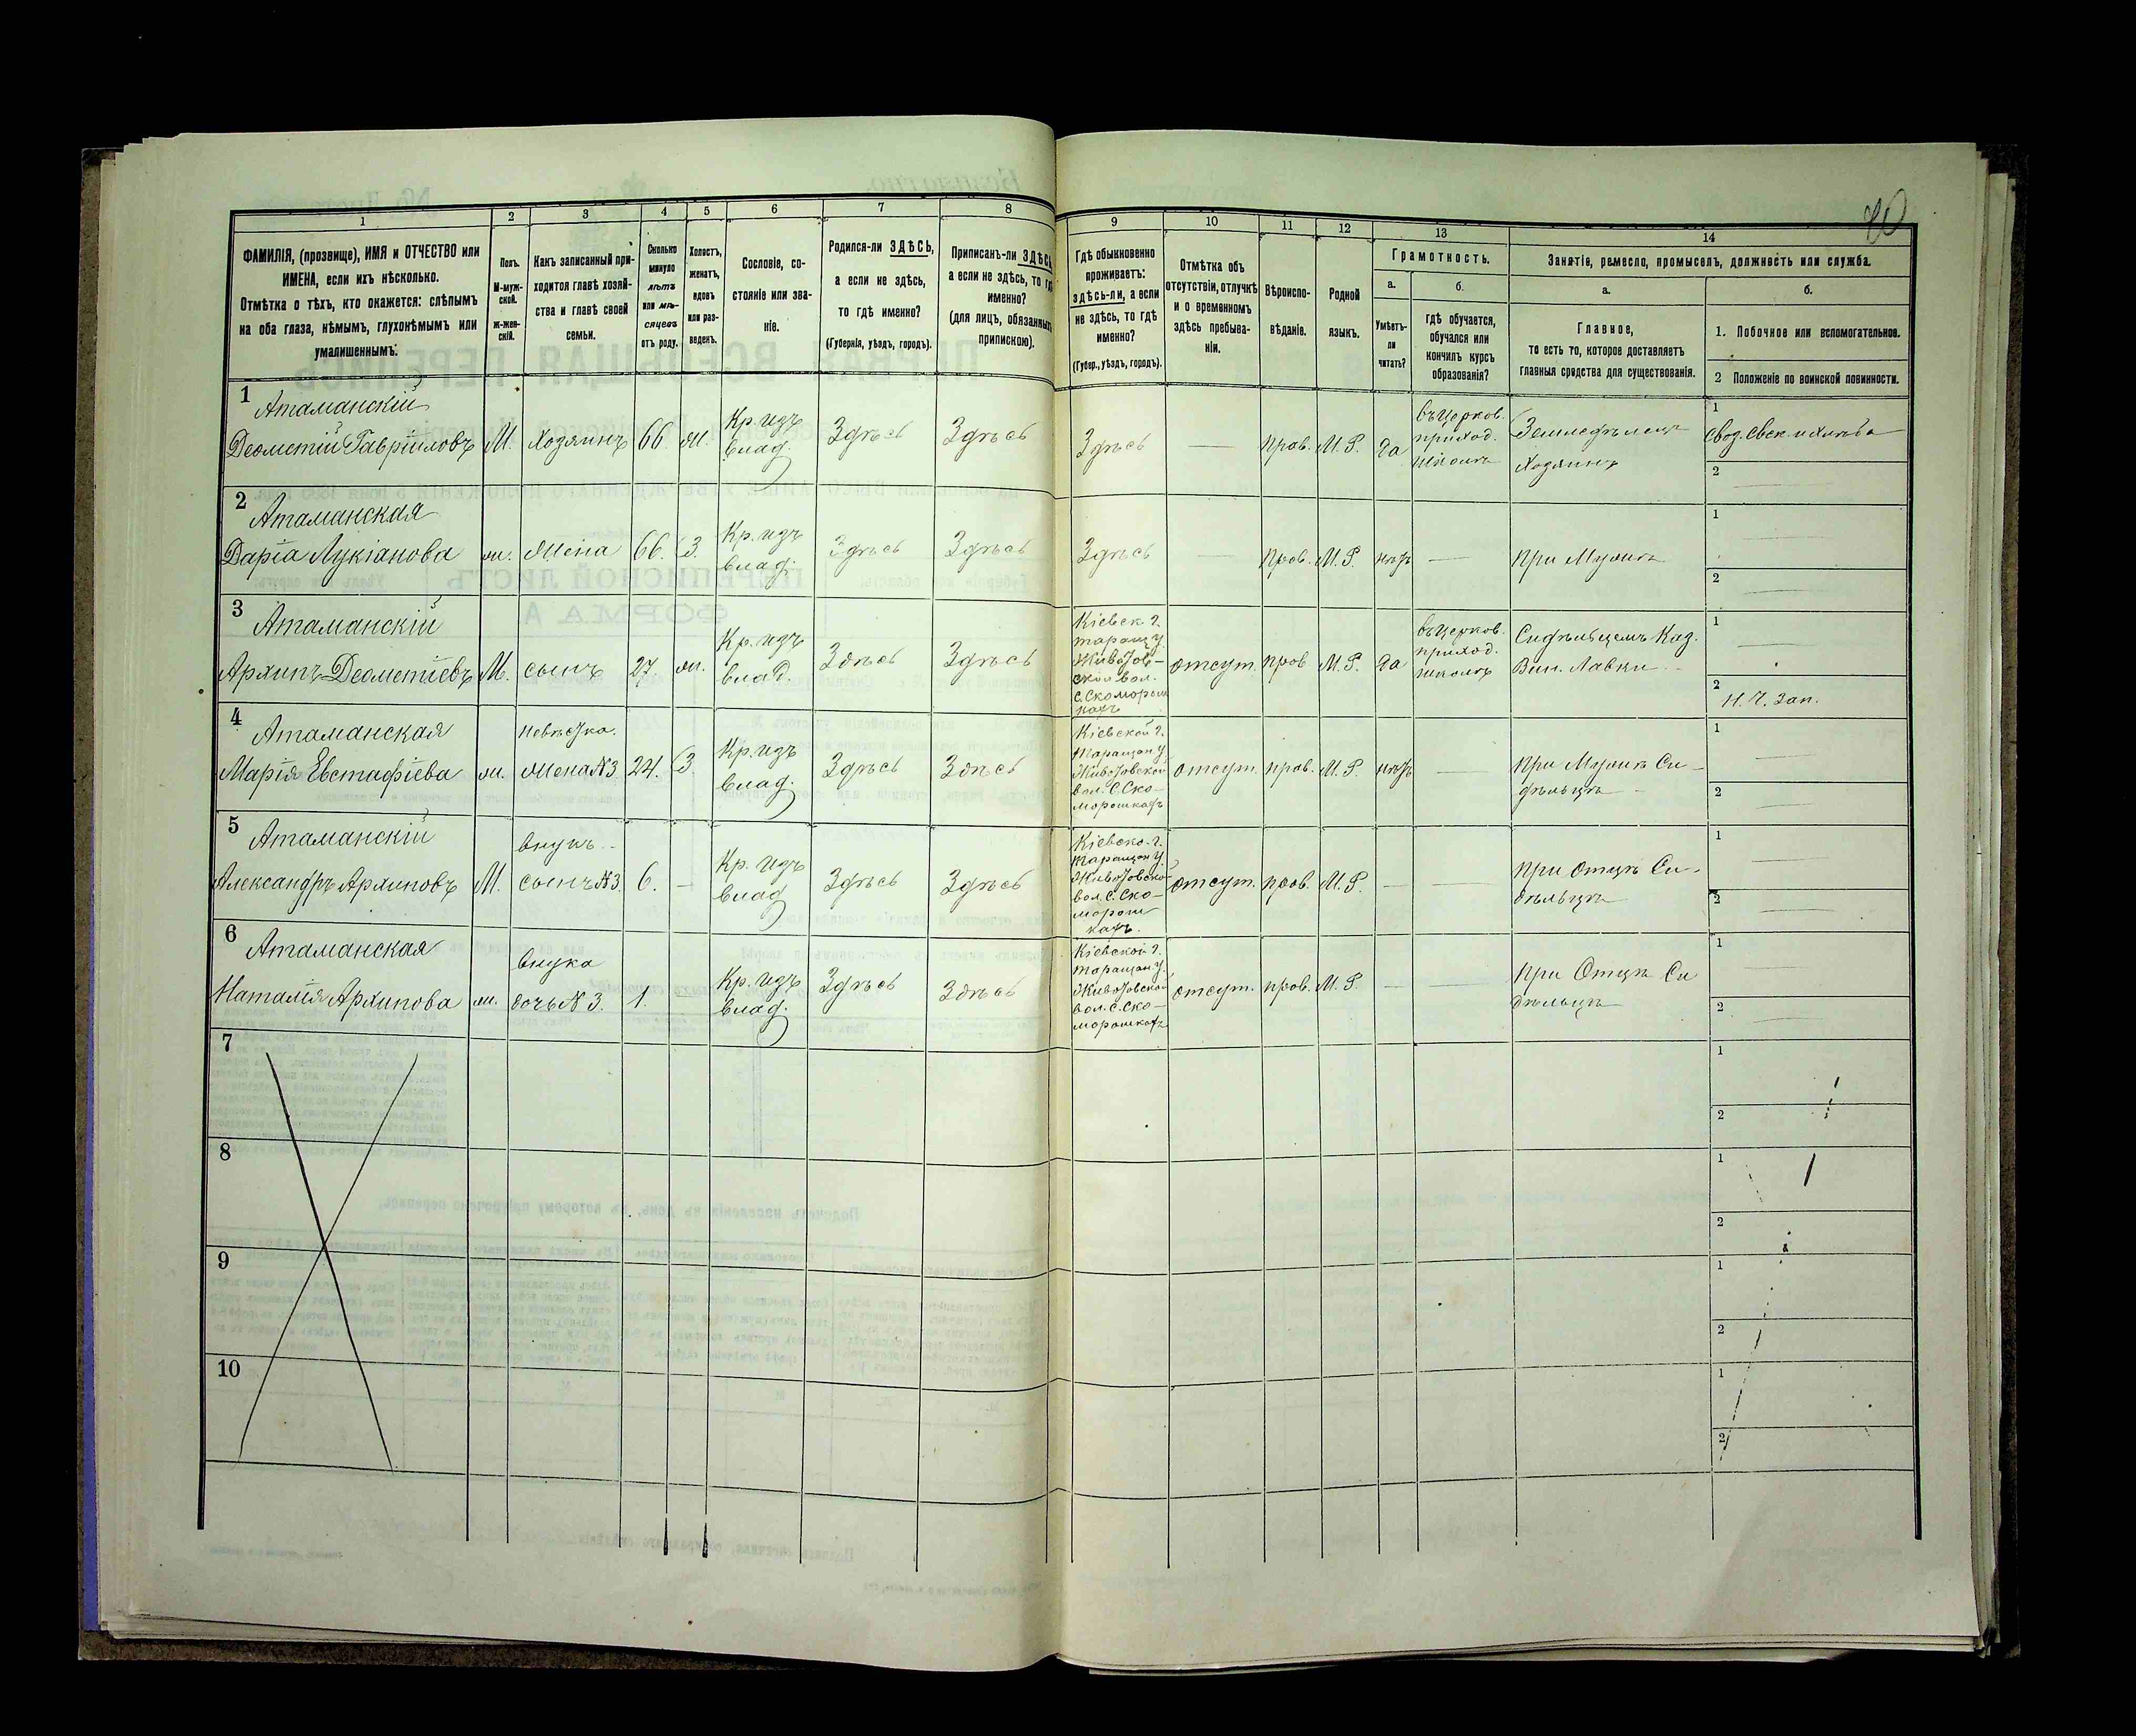 20
1 2 3 4 5 6 7 8 9 10 11 12 13 14
ФАМИЛІЯ, (прозвище), ИМЯ и ОТЧЕСТВО или
ИМЕНА, если ихъ нѣсколько.
Отмѣтка о тѣхъ, кто окажется: слѣпымъ
на оба глаза, нѣмымъ, глухонѣмымъ или
умалишеннымъ.
Полъ.
М-муж-
ской.
Ж-жен-
скій.
Какъ записанный при-
ходится главѣ хозяй-
ства и главѣ своей
семьи.
Сколько
минуло
лѣтъ
или мѣ-
сяцевъ
отъ роду.
Холостъ,
женатъ,
вдовъ
или раз-
веденъ.
Сословіе, со-
стояніе или зва-
ніе.
Родился-ли ЗДѢСЬ,
а если не здѣсь,
то гдѣ именно?
(Губернія, уѣздъ, городъ).
Приписанъ-ли ЗДѢСЬ
а если не здѣсь, то гдѣ
именно?
(для лицъ, обязанныхъ
припискою).
Гдѣ обыкновенно
проживаетъ:
здѣсь-ли, а если
не здѣсь, то гдѣ
именно?
(Губер., уѣздъ, городъ).
Отмѣтка объ
отсутствіи, отлучкѣ
и о временномъ
здѣсь пребыва-
ніи.
Вѣроиспо-
вѣданіе.
Родной
языкъ.
Грамотность.
а.
Умѣетъ-
ли
читать?
б.
гдѣ обучается,
обучался или
кончилъ курсъ
образованія?
Занятіе, ремесло, промыселъ, должность или служба.
а.
Главное,
то есть то, которое доставляетъ
главныя средства для существованія.
б.
1. Побочное или вспомогательное.
2 Положеніе по воинской повинности.
1
Атаманскій
Деометій Гавріиловъ
М.
Хозяинъ
66
ж.
Кр. изъ
влад.
Здѣсь
Здѣсь
Здѣсь
—
прав.
М. Р.
да
въ церков.
приход.
школѣ
Земледѣлецъ
Хозяинъ
1
2
2
Атаманская
Дарія Лукіанова
ж.
Жена
66.
З.
Кр. изъ
влад.
Здѣсь
Здѣсь
Здѣсь
—
прав.
М. Р.
нѣтъ
—
При Мужѣ
1
2
3
Атаманскій
Архипъ Деометіевъ
М.
сынъ
27.
ж.
Кр. изъ
влад.
Здѣсь
Здѣсь
Кіевск. г.
таращ. у.
Животов-
ской вол.
с. Скоморош
кахъ
отсут.
прав
М. Р.
да
въ церков.
приход.
школѣ
Сидѣльцемъ Каз.
Вин. Лавки
1
2
Н. Ч. Зап.
4
Атаманская
Марія Евстафіева
ж.
невѣстка.
Жена N3.
24.
З.
Кр. изъ
влад.
Здѣсь
Здѣсь
Кіевской г.
Таращан. у.
Животовской
вол. С. Ско-
морошкахъ
отсут.
прав.
М. Р.
нѣтъ
—
При Мужѣ Си-
дѣльцѣ
1
2
5
Атаманскій
Александръ Архиповъ
М.
внукъ
сынъ N3.
6.
—
Кр. изъ
влад
Здѣсь
Здѣсь
Кіевско. г.
Таращан. у.
Животовско
вол. с. Ско-
морош
кахъ.
отсут.
прав.
М. Р.
—
—
При Отцѣ Си-
дѣльцѣ
1
2
6
Атаманская
Наталія Архипова
ж.
внука
дочь N 3.
1.
—
Кр. изъ
влад.
Здѣсь
Здѣсь
Кіевской г.
Таращан. у.
Животовской
вол. с. Ско-
морошкахъ
отсут.
прав.
М. Р.
—
—
При Отцѣ Си
дѣльцѣ
1
2
7
1
2
8
1
2
9
1
2
10
1
2